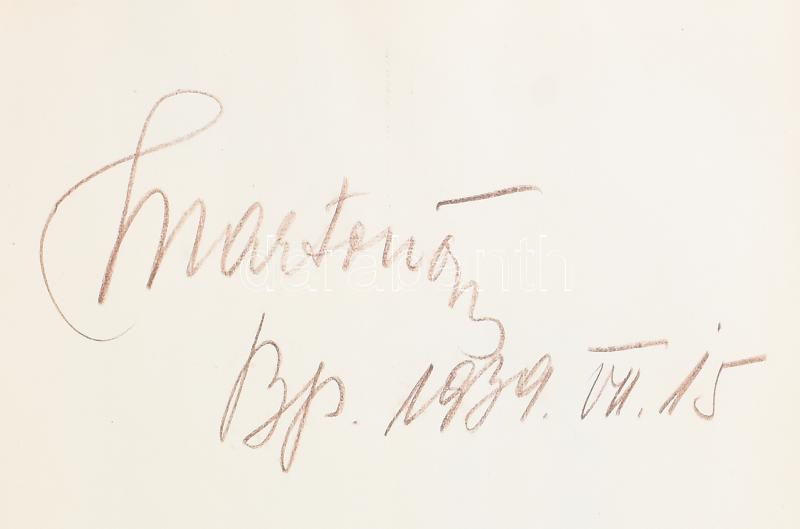 Martonáz
darabanth
Bp. 1939. VII. 15